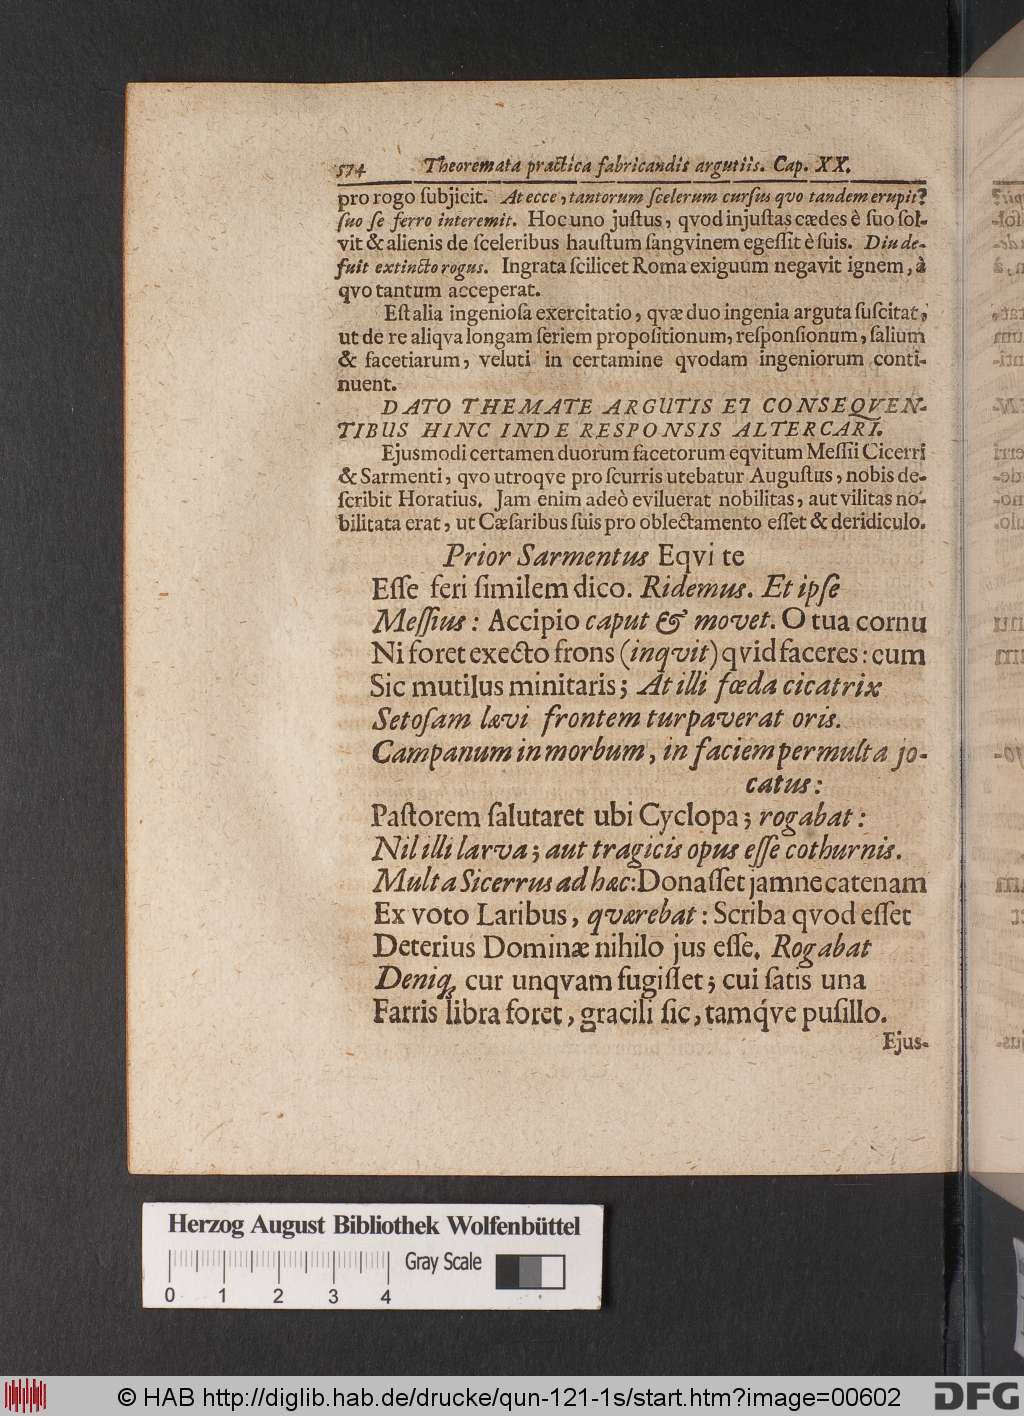 574 Theoremata practica fabricandis argutiis. Cap. XX.
pro rogo ſubjicit. At ecce, tantorum ſcelerum curſus qvo tandem erupit?
ſuo ſe ferro interemit. Hoc uno juſtus, qvod injuſtas cædes è ſuo ſol-
vit & alienis de ſceleribus hauſtum ſangvinem egeſſit è ſuis. Diu de-
fuit extincto rogus. Ingrata ſcilicet Roma exiguum negavit ignem, à
qvo tantum acceperat.
Eſt alia ingenioſa exercitatio, qvæ duo ingenia arguta ſuſcitat,
ut de re aliqva longam ſeriem propoſitionum, reſponſionum, ſalium
& facetiarum, veluti in certamine qvodam ingeniorum conti-
nuent.
DATO THEMATE ARGUTIS ET CONSEQVEN-
TIBUS HINC INDE RESPONSIS ALTERCARI.
Ejusmodi certamen duorum facetorum eqvitum Meſſii Cicerri
& Sarmenti, qvo utroqve pro ſcurris utebatur Auguſtus, nobis de-
ſcribit Horatius. Jam enim adeò eviluerat nobilitas, aut vilitas no-
bilitata erat, ut Cæſaribus ſuis pro oblectamento eſſet & deridiculo.
Prior Sarmentus Eqvi te
Eſſe feri ſimilem dico. Ridemus. Et ipſe
Meſſius: Accipio caput & movet. O tua cornu
Ni foret execto frons (inqvit) qvid faceres: cum
Sic mutilus minitaris; At illi fœda cicatrix
Setoſam lævi frontem turpaverat oris.
Campanum in morbum, in faciem permulta jo-
catus:
Paſtorem ſalutaret ubi Cyclopa; rogabat:
Nil illi larva; aut tragicis opus eſſe cothurnis.
Multa Sicerrus ad hæc: Donaſſet jamne catenam
Ex voto Laribus, qværebat: Scriba qvod eſſet
Deterius Dominæ nihilo jus eſſe. Rogabat
Deniq; cur unqvam fugiſſet; cui ſatis una
Farris libra foret, gracili ſic, tamq́ve puſillo.
Ejus-
Herzog August Bibliothek Wolfenbüttel
Gray Scale
0 1 2 3 4
© HAB http://diglib.hab.de/drucke/qun-121-1s/start.htm?image=00602
DFG